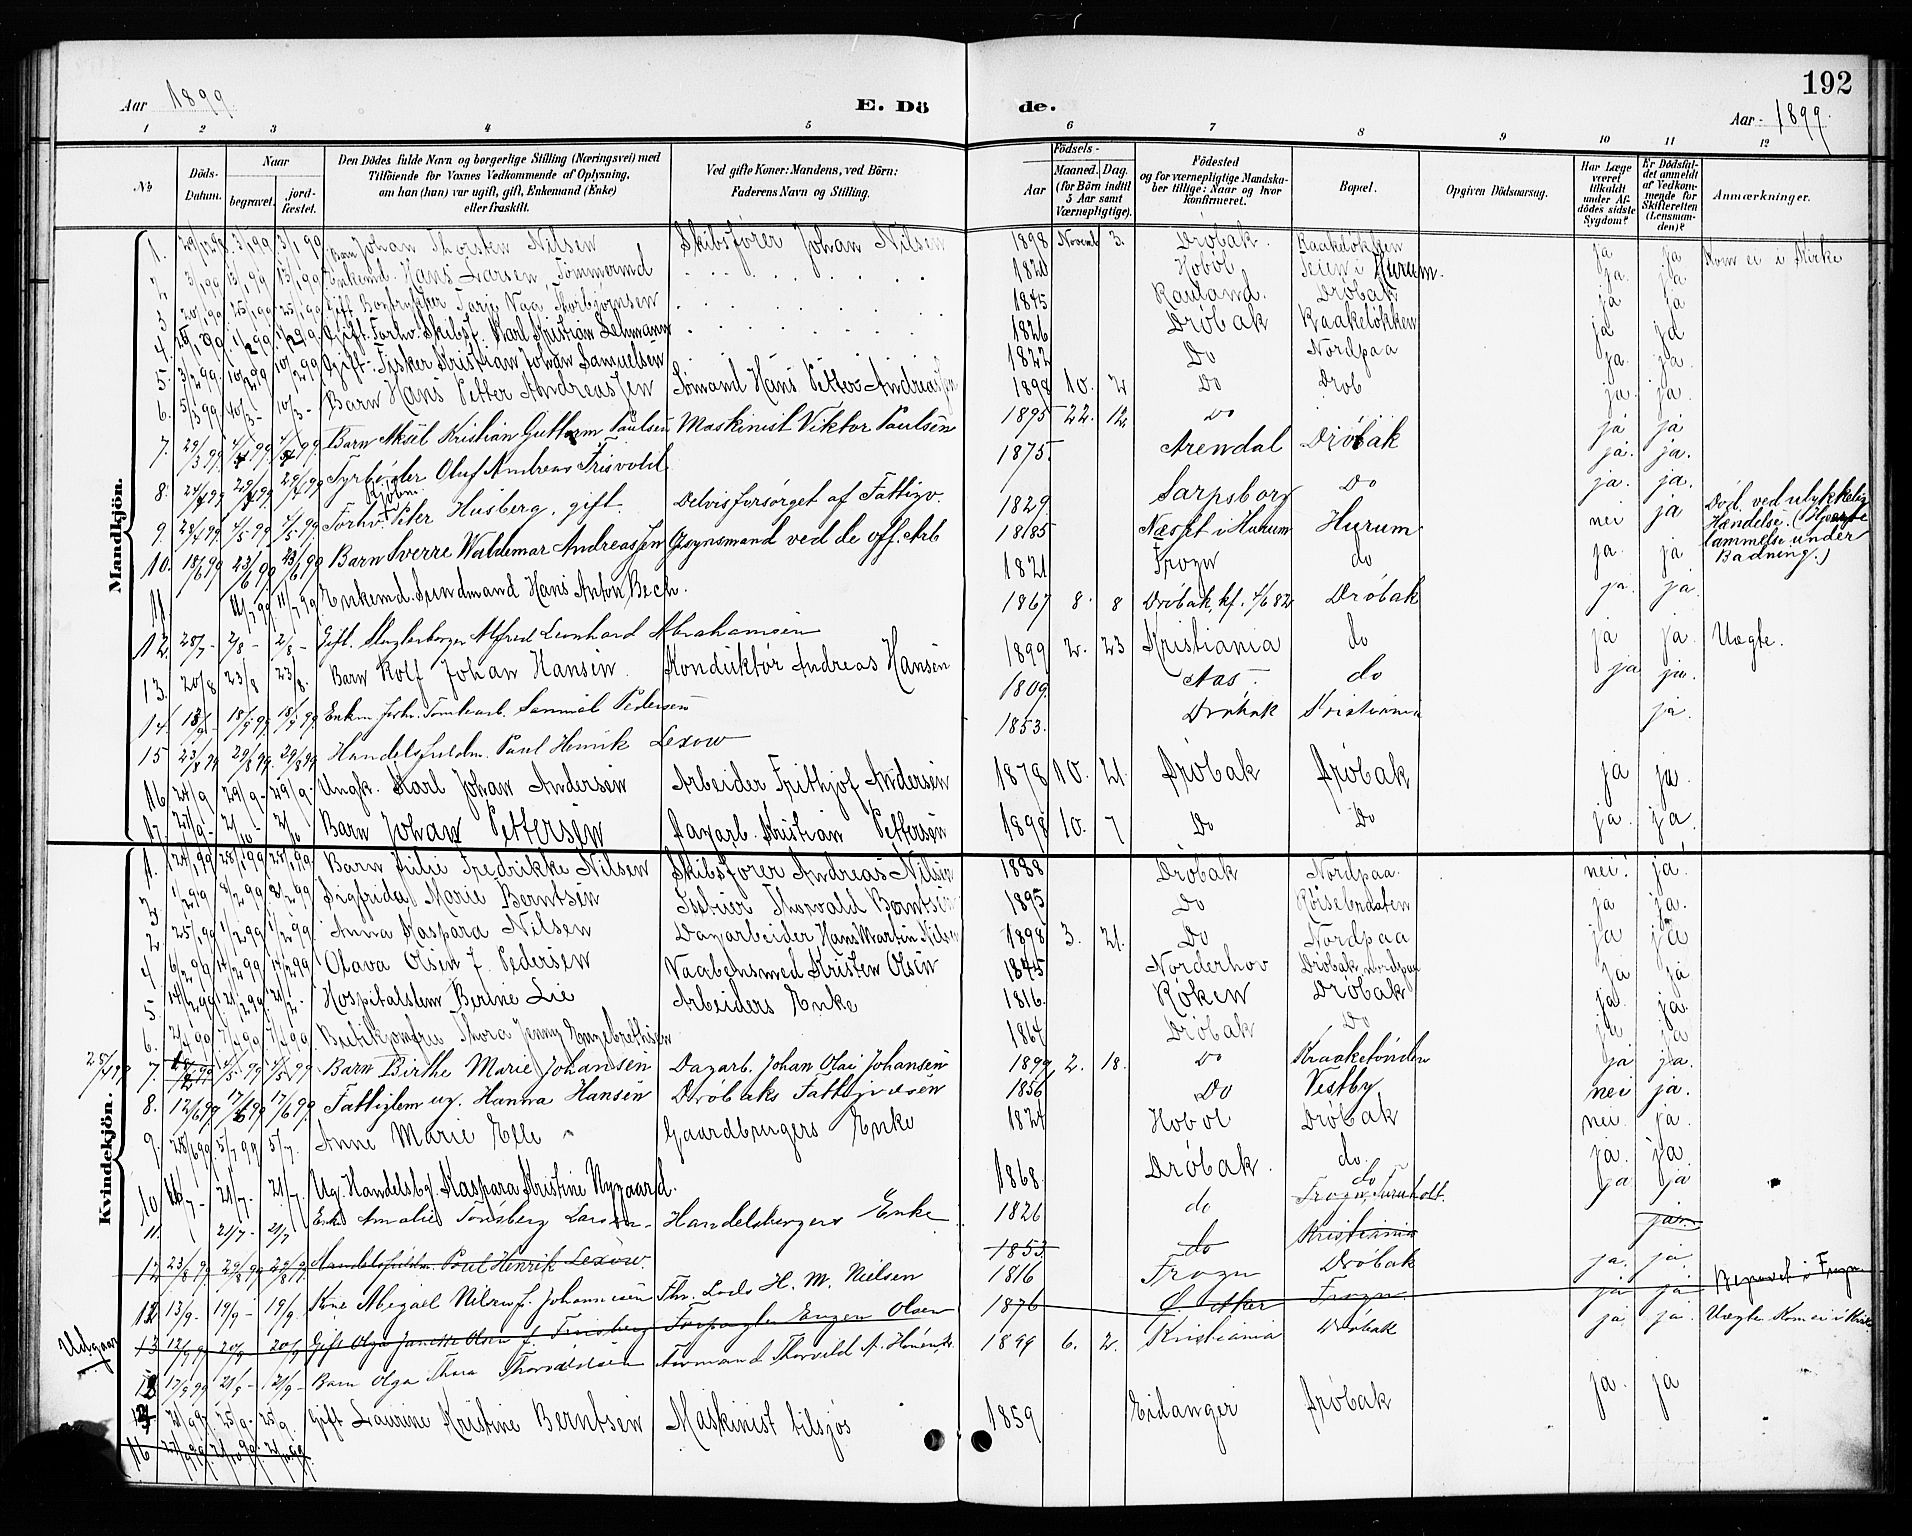 192
Aar 1899. E. Dö de. Aar 1899.
1 2 3 4 5 6 7 8 9 10 11 12
No. Döds-Datum. Naar begravet. jordfæstet. Den Dödes fulde Navn og borgerlige Stilling (Næringsvei) med Tilföiende for Voxnes Vedkommende af Oplysning, om han (hun) var ugift, gift, Enkemand (Enke) eller fraskilt. Ved gifte Koner: Mandens, ved Börn: Faderens Navn og Stilling. Födsels- Aar Maaned. Dag. (for Börn indtil 5 Aar samt Værnepligtige). Födested og for værnepligtige Mandskaber tillige: Naar og hvor konfirmeret. Bopæl. Opgiven Dödsaarsag. Har Læge været tilkaldt under Afdödes sidste Sygdom? Er Dödsfaldet anmeldt af Vedkommende for Skifteretten (Lensmanden)? Anmærkninger.
Mandkjön.
1. 3/1 99 3/1 99 Barn Johan Thorsten Nilsen Skibsfører Johan Nilsen 1898 Novemb 3. Drøbak. Kaakeløkken ja ja Kom ei i Kirke
2. 3/1 99 13/1 99 13/1 99 Enkemd. Hans Larsen, Tømmermd 1820 Hobøl i Hurum. ja. ja
3 20/1 99 25/1 99 25/1 99 Gift Bogtrykker Tarje Vaa Thorbjørnsen 1845 Rauland. Drøbak ja ja
4. 1/2 99. 1/2 99. Gift. Forhv. Skibsf. Karl Kristian Lehmann 1826 Drøbak Kaakeløkken ja ja
5. 3/2 99. 10/2 99 10/2 99 Gift. Fisker Kristian Johan Samuelsen 1822 Do Nordpaa ja. ja.
6. 5/3 99. 10/3 - 10/3 - Barn Hans Petter Andreassen Sømand Hans Petter Andreassen 1898 10. 2 Do Drøb ja. ja.
7. 29/3 99. Barn Aksel Kristian Guttorm Paulsen Maskinist Viktor Paulsen 1895 22. 12 Do ja ja
8. 24/4 99 29/4 99 29/4 99 Fyrbøder Oluf Andreas Frisvold 1875. Arendal Drøbak ja. ja.
9. 28/4 99 4/5 99 4/5 99. Forhv. Peter Husberg, gift. Delvis forsørget af Fattigv. 1829 Sarpsborg Do ja. ja.
10. 18/6 99 23/6 99 23/6 99 Barn Sverre Waldemar Andreassen Opsynsmand ved de off. Arb 1885 Næsset i Hurum Hurum nei ja Død ved ulykkelig Hændelse. (Hjertelammelse under Badning.)
11. 11/7 99 11/7 99 Enkemd. Sundmand Hans Anton Bech. 1821 Frogn do ja. ja
12. 28/7 - 2/8 - 2/8 - Gift. Alfred Leonhard Abrahamsen 1867 8. 8 Drøbak, kf. 4/6 82 Drøbak ja ja.
13. 20/8 23/8 23/8. Barn Rolf Johan Hansen Konduktør Andreas Hansen 1899 2. 23 Kristiania do ja ja. Uægte.
14. 18/9 99 18/9 99. Enkm. forhv. Samuel Pedersen 1809. Aas. do ja ja.
15 23/8 99 29/8 99. 29/8 99. Handelsfuldm. Paul Henrik Lexow 1853. Drøbak Kristiania ja.
16 24/9 29/9 - 29/9 - Ungk. Karl Johan Andersen Arbeider Frithjof Andersen 1878 10. 21. Drøbak Drøbak ja ja.
17. 27/9 - 2/10 - 2/10 Barn Johan Pettersen Dagarb. Kristian Pettersen 1898 10. 7 Do Do ja. ja.
Kvindekjön.
1. 28/1 99 Barn Julie Fredrikke Nilsen Skibsfører Andreas Nilsen 1888 Drøbak Nordpaa. nei. ja.
8/2 99 8/2 99 Sigfrida Marie Berntsen Thorvald Berntsen 1895 Do ja ja.
25/1 99 1/2 99 1/2 99. Anna Kaspara Nilsen Dagarbeider Hans Martin Nilsen 1898 3. 21. Do Nordpaa ja ja
4. 6/2 99 14/2 99 14/2 99 Olava Olsen f. Pedersen Kristen Olsen 1845 Norderhov Drøbak, Nordpaa ja ja
5. 14/2 99 21/2 99 21/2 - Hospitalslem Berine Lie Arbeiders Enke 1816. Røken Drøbak ja. ja.
6. 2/4 99 7/4 99 7/4 99. Butikjomfru Thora Jenny Engebretsen 1864 Drøbak Do ja ja
25/4 99 7. 4/5 99 4/5 99 Barn Birthe Marie Johansen Dagarb. Johan Olai Johansen 1899 2. 18. Do ja ja.
8. 12/6 99 17/6 99 17/6 99. Fattiglem ug. Hanna Hansen Drøbaks Fattigvæsen 1856 Do Vestby nei ja.
9. 28/6 99 5/7 99 5/7. Anne Marie Elle Gaardbrugers Enke 1824 Hobøl Drøbak nei. ja.
10. 16/7 - 21/7 - 21/7. Ug. Handelsbg. Kaspara Kristine Nygaard. 1868. Drøbak. do. ja. ja.
11. 21/7 - 21/7 Enke Amalie Tønsberg Larsen - Handelsborgers Enke 1826 do Frogn, ja ja
12 23/8 99 29/8 99 29/8 99 Handelsfuldm. Paul Henrik Lexow. 1853. do Kristiania ja.
12. 13/9 - 19/9 - 19/9. Kone Abigael Nilsen f. Johannesen Fhv. Lods H. M. Nielsen 1816 Frogn Drøbak ja. ja
Udgaar 13 12/9 99 20/9 20/9 Gift Olga Olsen f. Eugen Olsen 1876 Ø. Aker Frogn. ja ja Begravet i Frogn
17/9 99 21/9 - 21/9 - Barn Olga Thora Thorvaldsen 1899 6. 2. Kristiania Drøbak ja. ja. Uægte. Kom ei i Kirke
25/9 - 25/9. Gift Laurine Kristine Berntsen Maskinist tilsjøs 1859 Eidanger Drøbak ja. ja
16 27/9 99 2/10 99. 2/10 99.